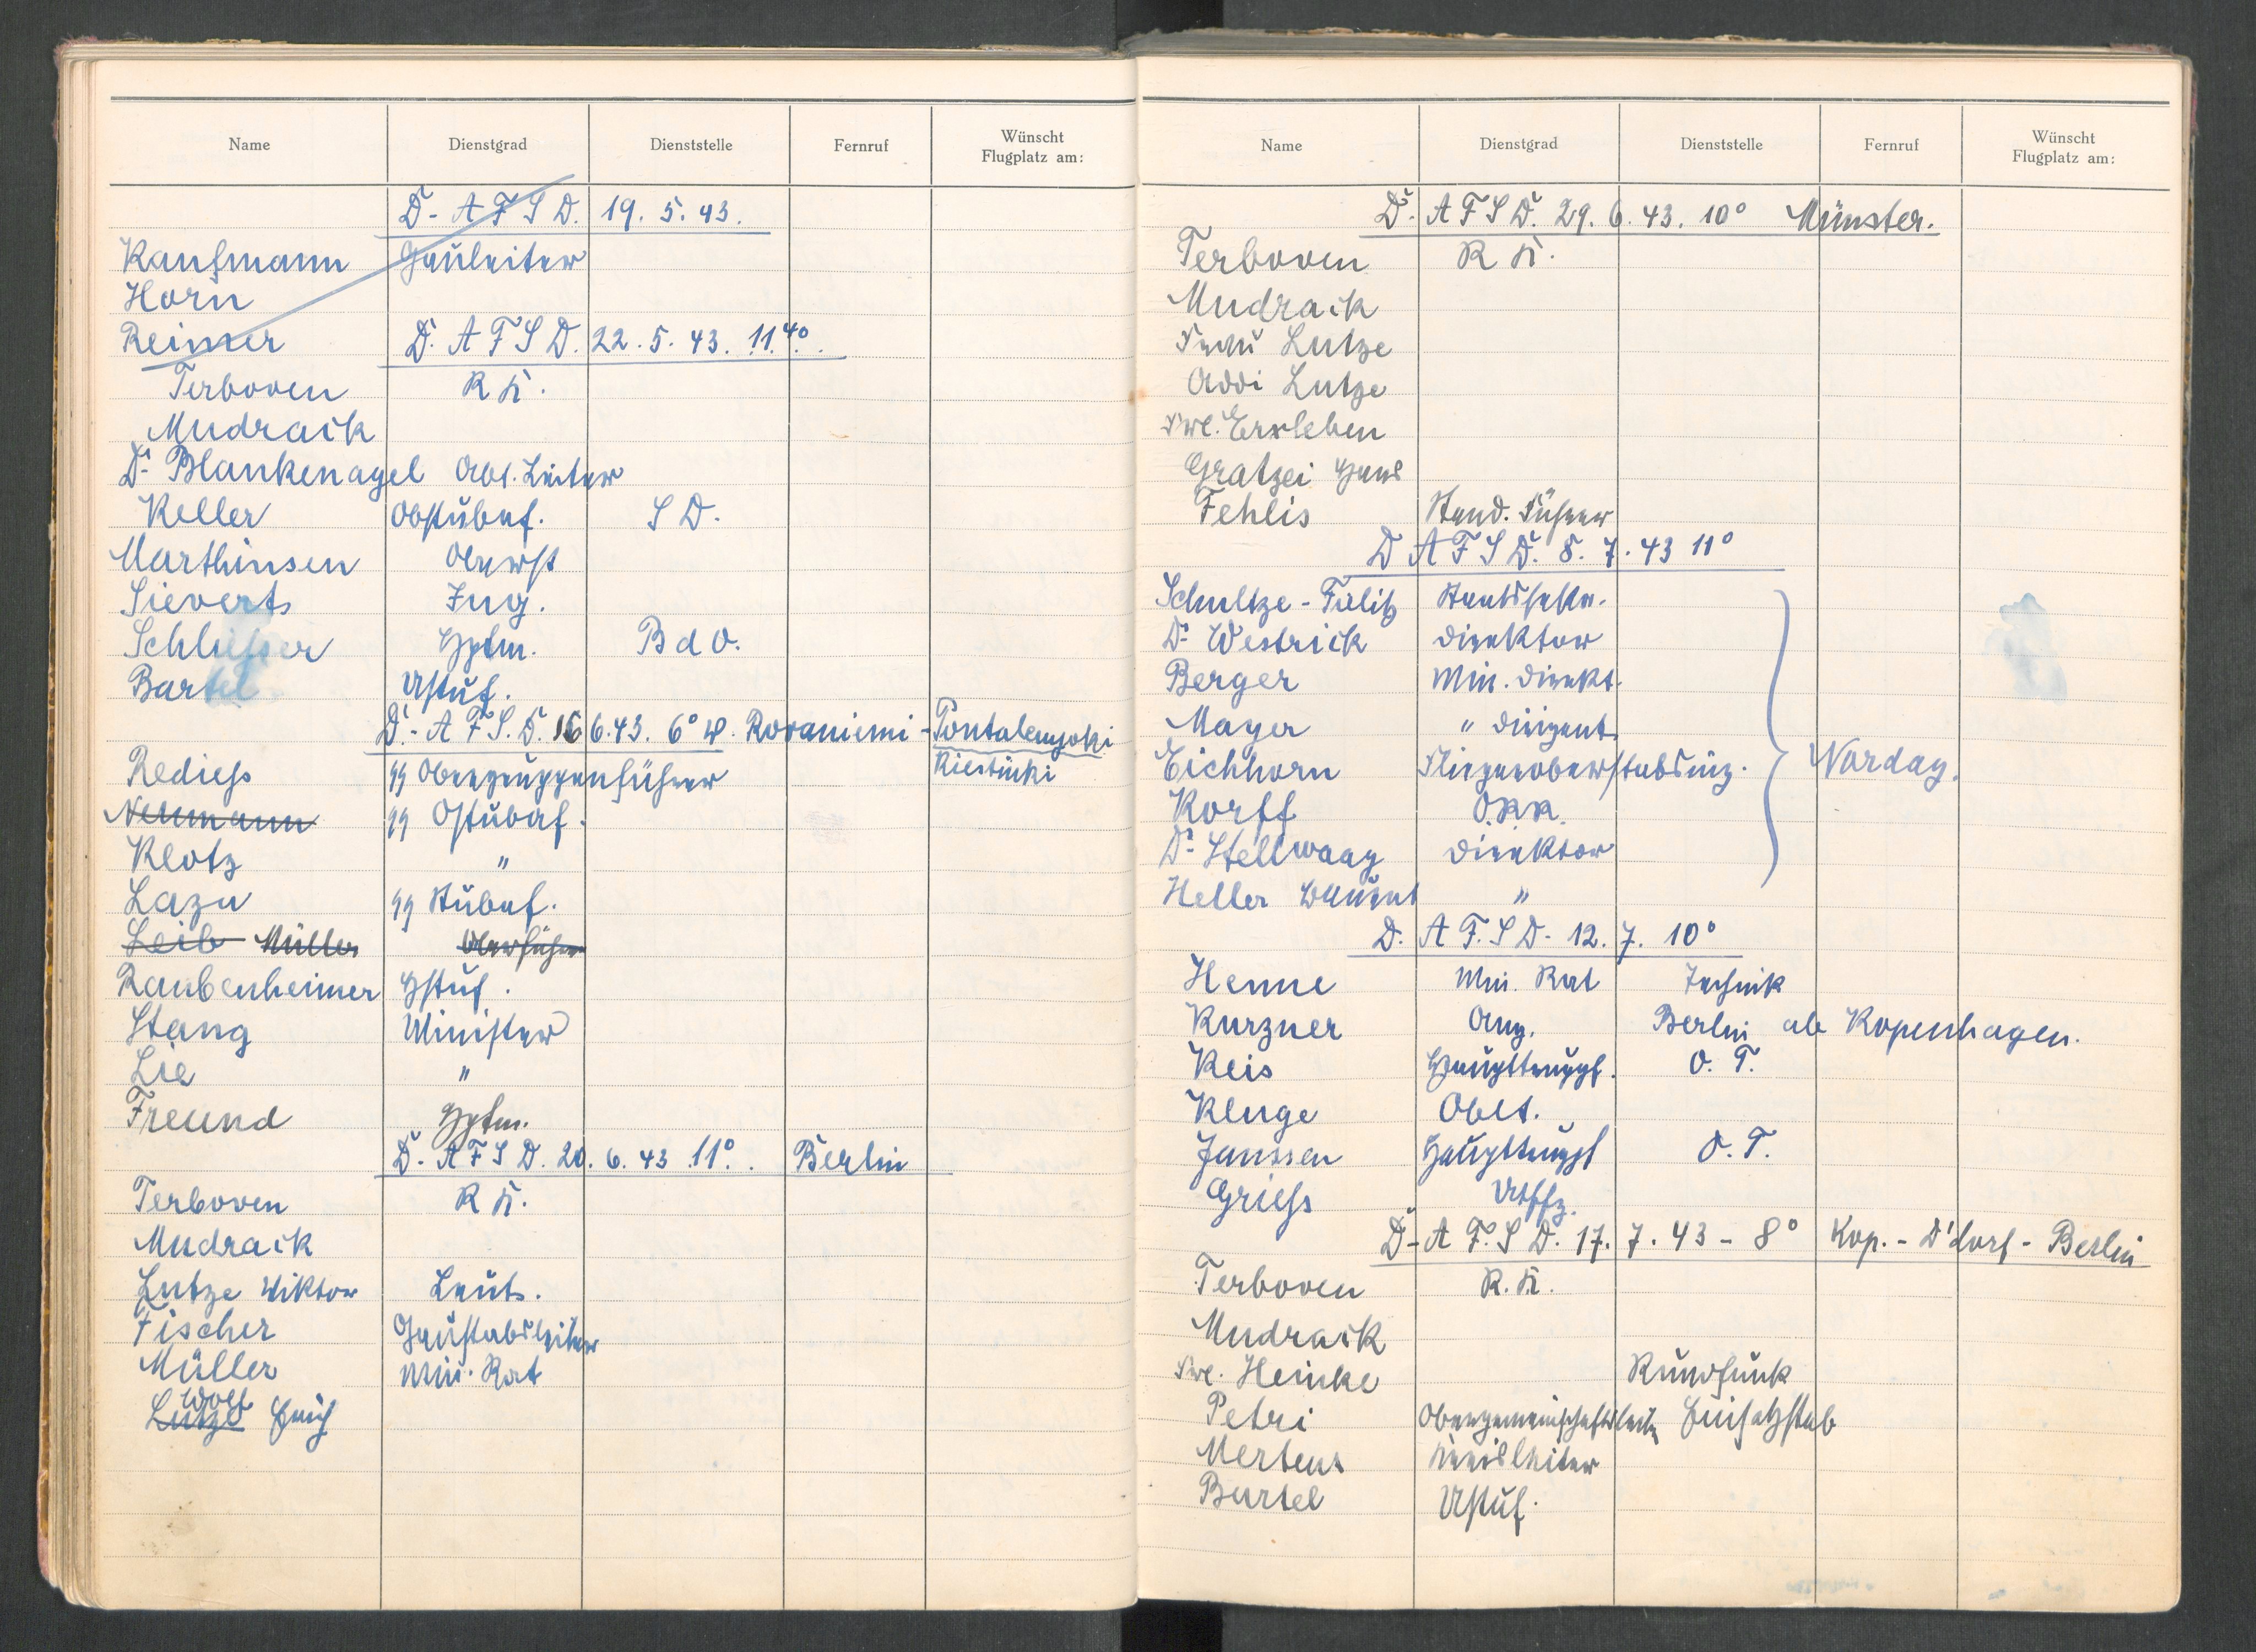 Name Dienstgrad Dienststelle Fernruf Wünscht Flugplatz am:
D-AFSD. 19. 5. 43.
Kaufmann Gauleiter
Horn
Reimer D. AFSD. 22. 5. 43. 11.40.
Terboven R K.
Mudrack
Dr. Blankenagel Abt. Leiter
Keller Obstubaf. S D.
Marthinsen Oberst
Sieverts Ing.
Schliesser Hptm. B d O.
Bartel Ustuf.
D.-A F S. D. 16 6.43. 6° W. Rovaniemi - Pontalenjoki
Rediess SS Obergruppenführer Kiestinki
Neumann SS Ostubaf.
Klotz "
Lazu SS Stubaf.
Leib Müller Oberführer
Raubenheimer Hstuf.
Stang Minister
Lie "
Freund Hptm.
D-AFSD. 20. 6. 43 11°. Berlin
Terboven R K.
Mudrack
Lutze Viktor Leut.
Fischer Gaustabsleiter
Müller Min. Rat
Wolf
Lutze Erich
Name Dienstgrad Dienststelle Fernruf Wünscht Flugplatz am:
D. AFSD. 29. 6. 43. 10° Münster.
Terboven R K.
Mudrack
Frau Lutze
Addi Lutze
Frl. Erxleben
Gratzei Hans
Fehlis Stand. Führer
D AFSD. 8. 7. 43 11°
Schultze-Fielitz Staatssekr.
Dr. Westrick Direktor
Berger Min. Direkt.
Mayer " Dirigent
Eichhorn Fliegeroberstabsing. Nordag.
Korff O.R.R.
Dr. Stellwaag Direktor
Heller Baurat "
D. A F. S D. 12. 7. 10°
Henne Min. Rat Technik
Kurzner Ang. Berlin ab Kopenhagen.
Reis Haupttruppf. O. T.
Kluge Oblt.
Janssen Haupttruppf O. T.
Griess Uffz.
D-A F. S D. 17. 7. 43 - 8° Kop. - D'dorf - Berlin
Terboven R. K.
Mudrack
Frl. Heinke Rundfunk
Petri Obergemeinschaftsleiter Einsatzstab
Mertens Kreisleiter
Bartel Ustuf.